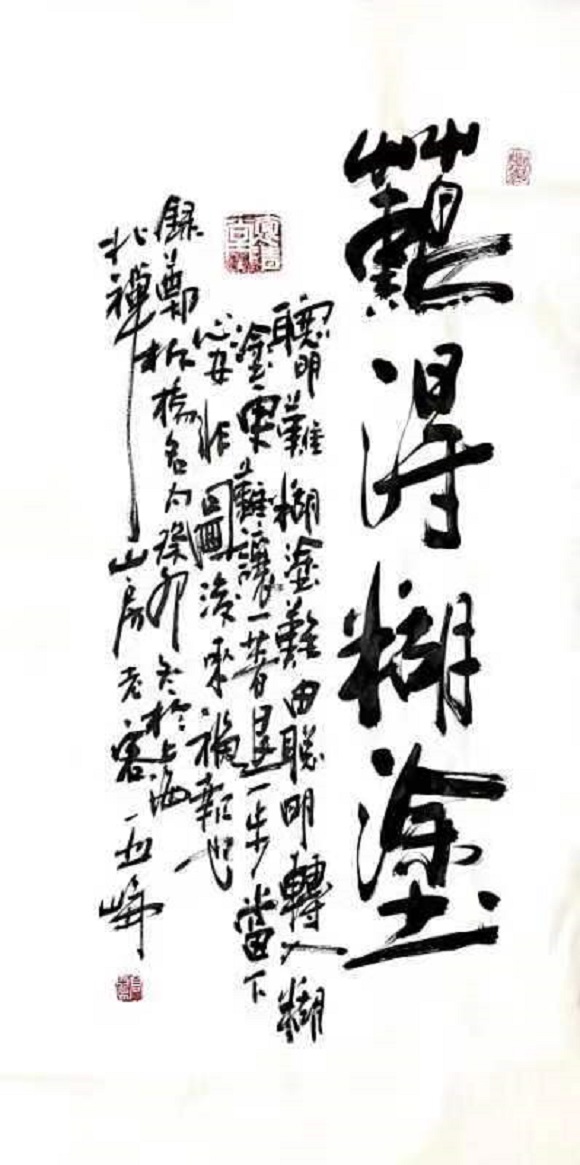 難得糊塗
聰明難糊塗難由聰明轉入糊
塗更難讓一著退一步當下
心安非圖後來福報也
錄鄭板橋名句癸卯冬於上海
北禪山房老 峰